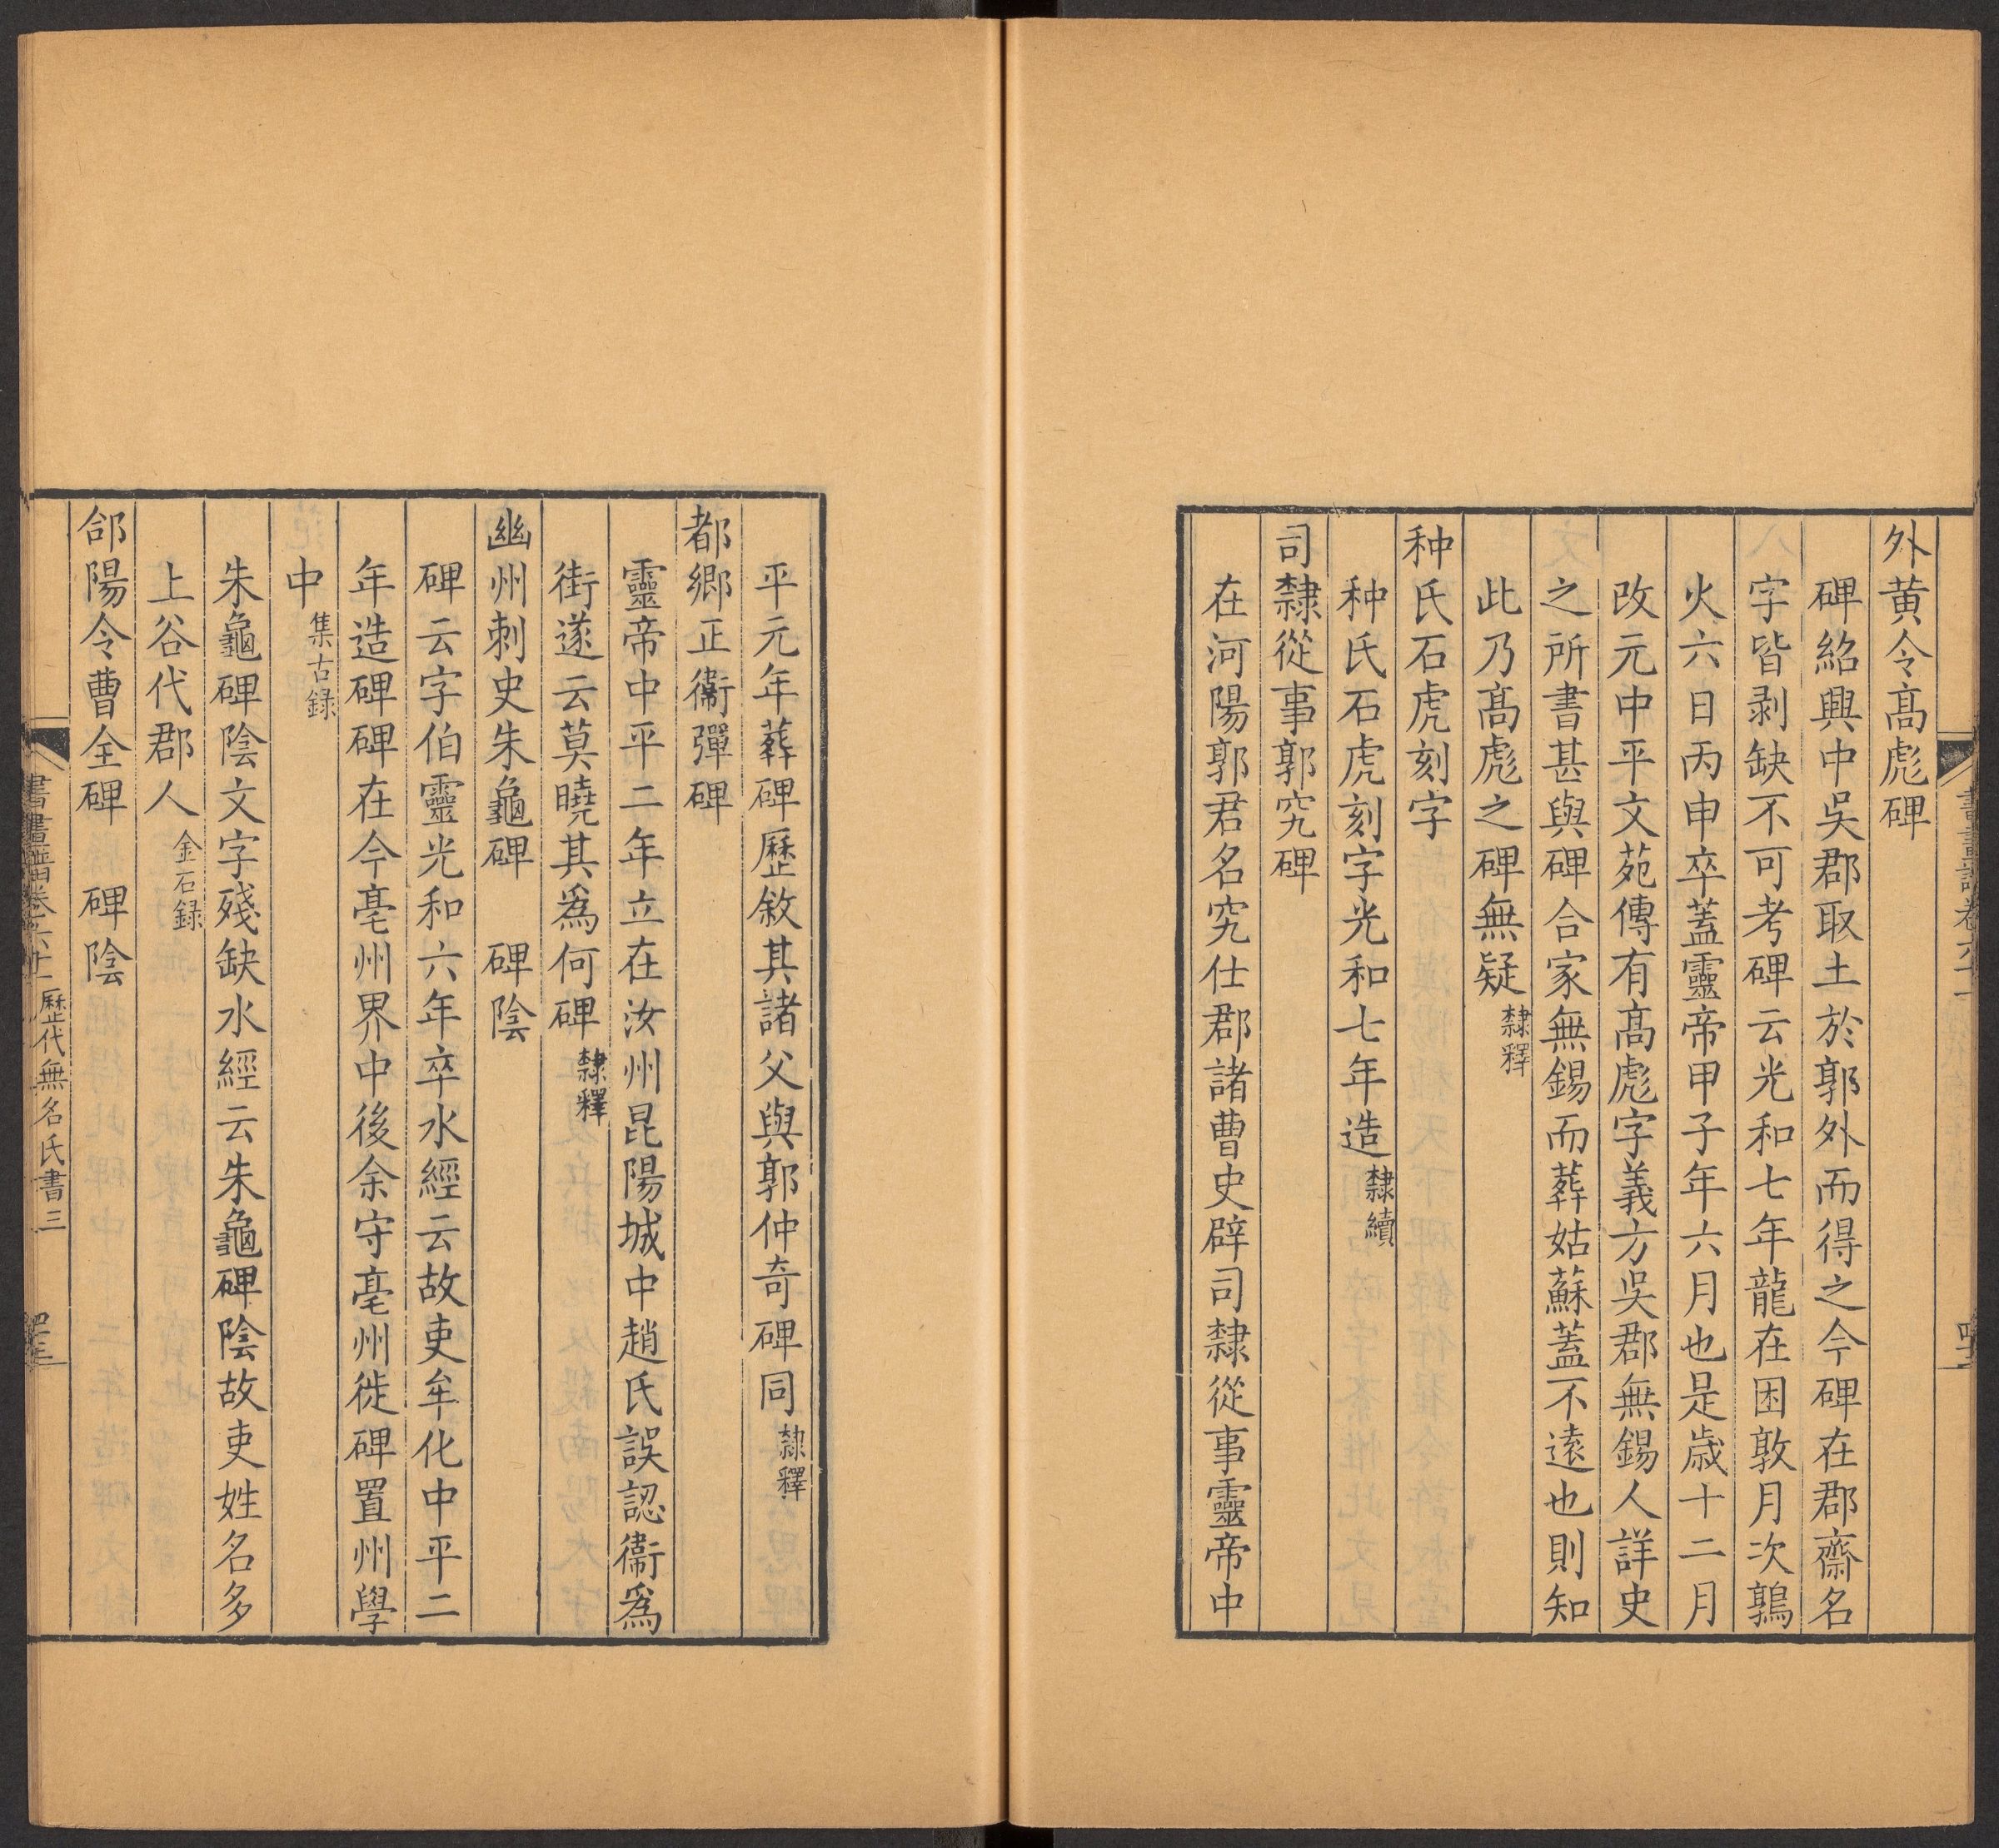 外黄令髙彪碑
碑紹興中吳郡取土於郭外而得之今碑在郡齋名
字皆剥缺不可考碑云光和七年龍在困敦月次鶉
火六日丙申卒蓋靈帝甲子年六月也是歳十二月
改元中平文苑傳有髙彪字義方吳郡無錫人詳史
之所書甚與碑合家無錫而葬姑蘇蓋不遠也則知
此乃髙彪之碑無疑隸釋
种氏石虎刻字
种氏石虎刻字光和七年造隸續
司隸從事郭究碑
在河陽郭君名究仕郡諸曹史辟司隸從事靈帝中
平元年葬碑歷敘其諸父與郭仲奇碑同隸釋
都鄉正衞彈碑
靈帝中平二年立在汝州昆陽城中趙氏誤認衞爲
街遂云莫曉其爲何碑隸釋
幽州刺史朱龜碑 碑陰
碑云字伯靈光和六年卒水經云故吏牟化中平二
年造碑碑在今亳州界中後余守亳州徙碑置州學
中集古録
朱龜碑陰文字殘缺水經云朱龜碑陰故吏姓名多
上谷代郡人金石録
郃陽令曹全碑 碑陰
書畫譜卷六十一 歷代無名氏書三